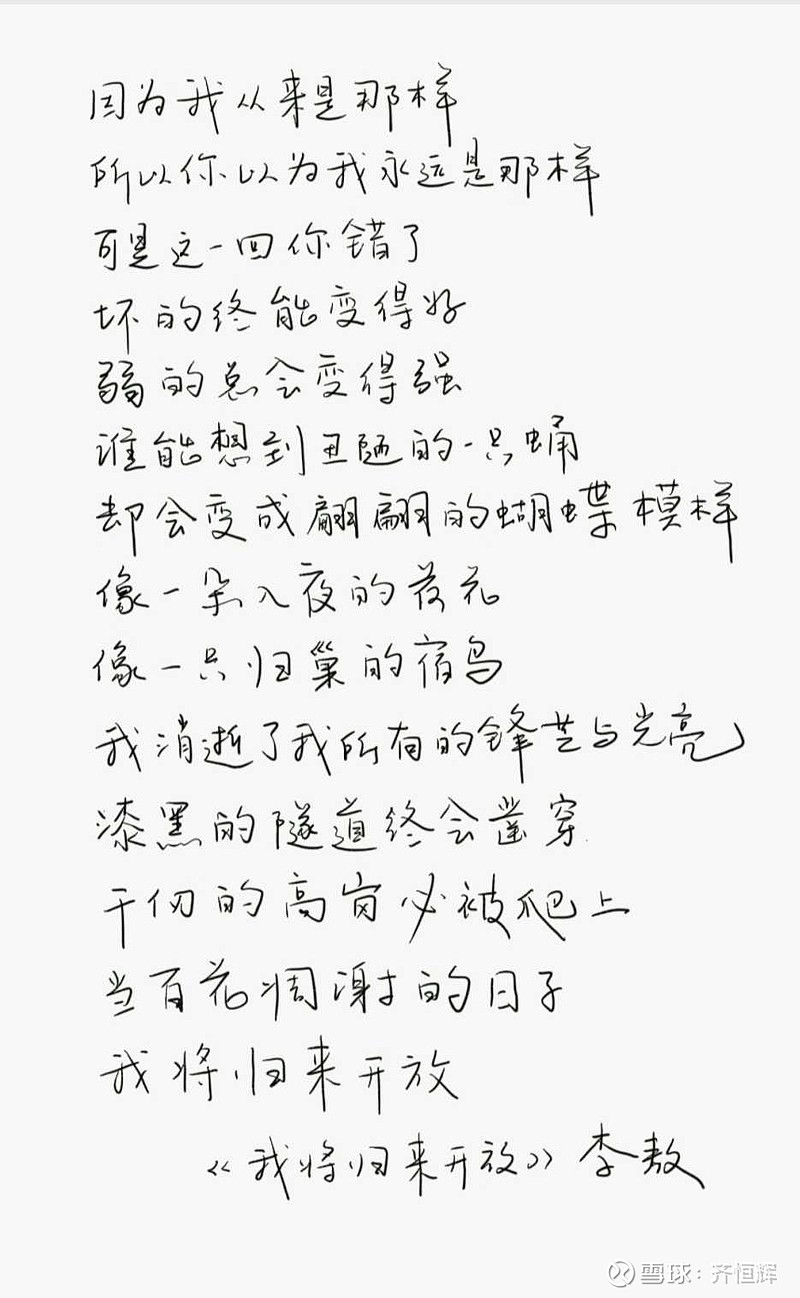 因为我从来是那样
所以你以为我永远是那样
可是这一回你错了
坏的终能变得好
弱的总会变得强
谁能想到丑陋的一只蛹
却会变成翩翩的蝴蝶模样
像一朵入夜的荷花
像一只归巢的宿鸟
我消逝了我所有的锋芒与光亮
漆黑的隧道终会凿穿
千仞的高岗必被爬上
当百花凋谢的日子
我将归来开放
《我将归来开放》李敖
雪球：齐恒辉